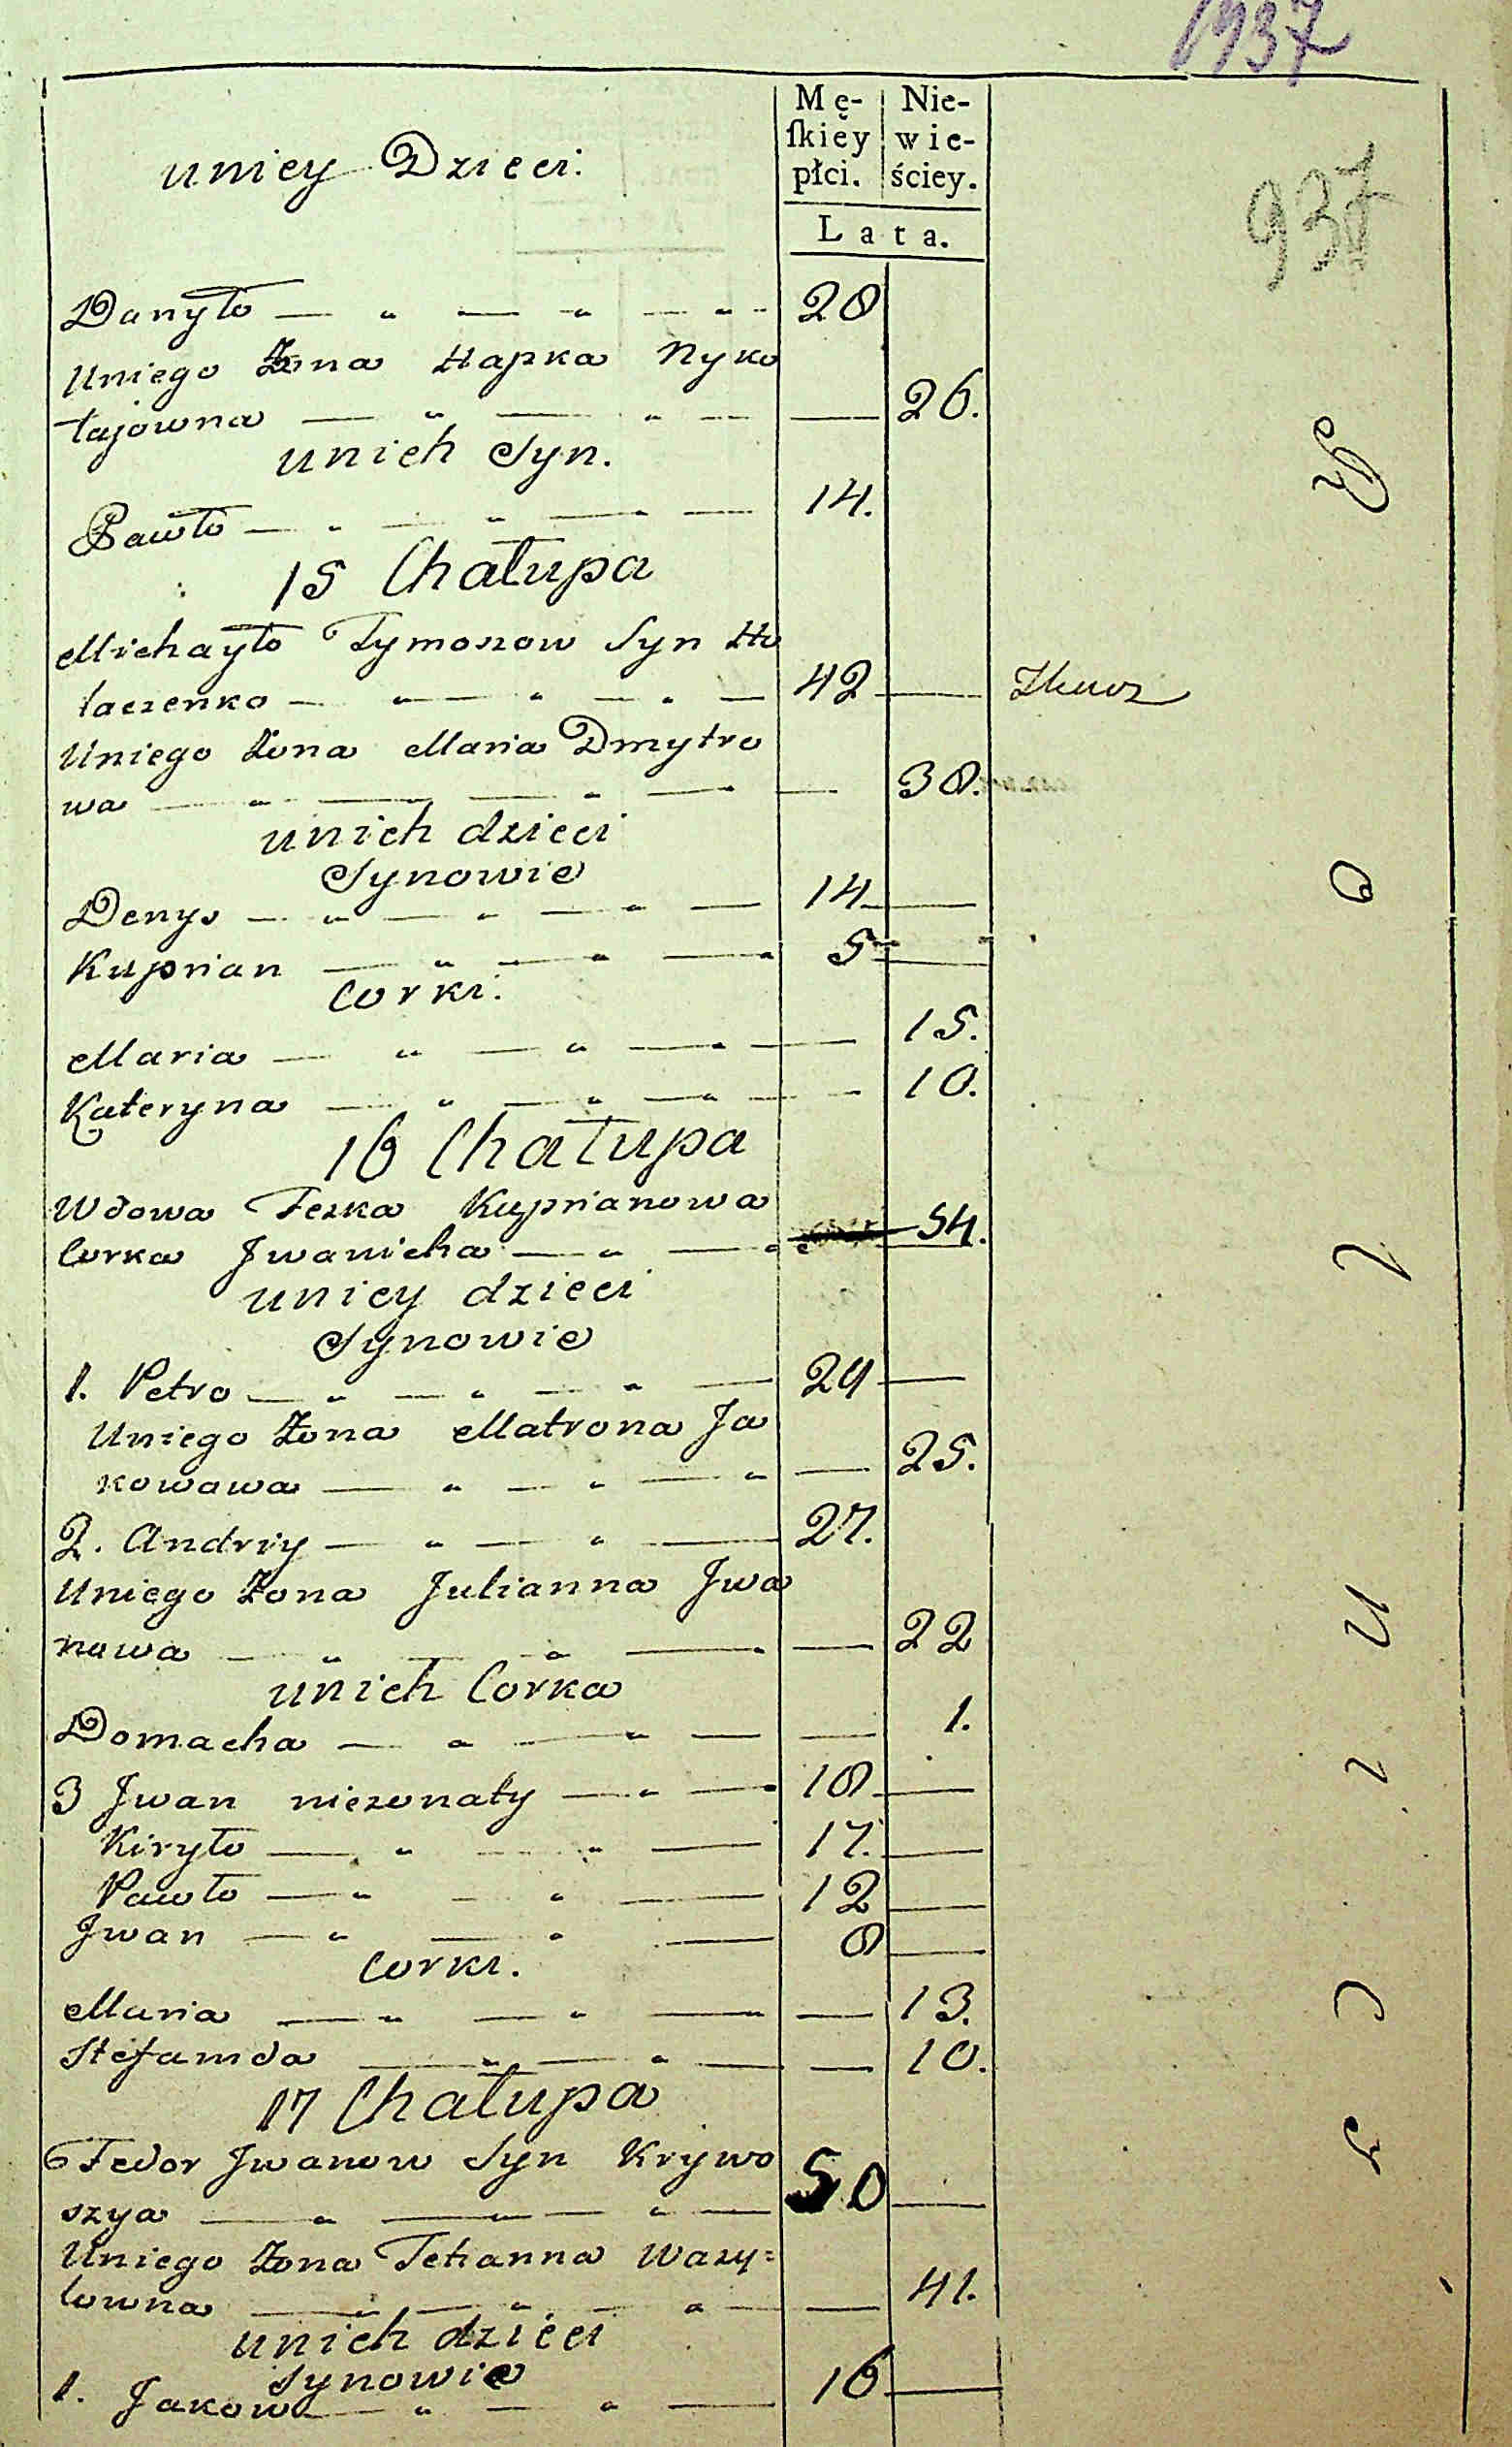 1937
Mę-
ſkiey
płci.
Nie-
wie-
ściey.
Lata.
937
uniey Dzieci.
Danyło — " — " — " 28
Uniego Żona Hapka Nyko
łajowna — " — " — — 26.
unich Syn.
Pawło — " — " — — 14.
15 Chałupa
Michayło Tymoszow Syn Ho
łaczenko — " — " — " — 42 — Tkacz
Uniego Żona Maria Dmytro
wa — " — — " — — 38.
unich dzieci
Synowie
Denys — " — " — " — 14 —
Kuprian — " — " — " 5 —
Corki.
Maria — " — " — " — 15.
Kateryna — " — " — " — 10.
16 Chałupa
Wdowa Feska Kuprianowa
Corka Iwanicha — " — " 54.
uniey dzieci
Synowie
1. Petro — " — " — " — 29 —
Uniego Żona Matrona Ja
kowowa — " — " — " — 25.
2. Andriy — " — " — 27.
Uniego Żona Julianna Jwa
nowa — " — " — " — 22
unich Corka
Domacha — " — " — — 1.
3 Jwan nieżonaty — " — 18 —
Kiryło — " — " — 17. —
Pawło — " — " — 12 —
Jwan — " — " — 8 —
Corki.
Maria — " — " — " — 13.
Stefanida — " — " — — 10.
17 Chałupa
Fedor Jwanow Syn Krywo
szya — " — " — " — 50 —
Uniego Żona Tetianna Wasy=
lowna — " — " — " — — 41.
unich dzieci
Synowie
1. Jakow — " — " — 16 —